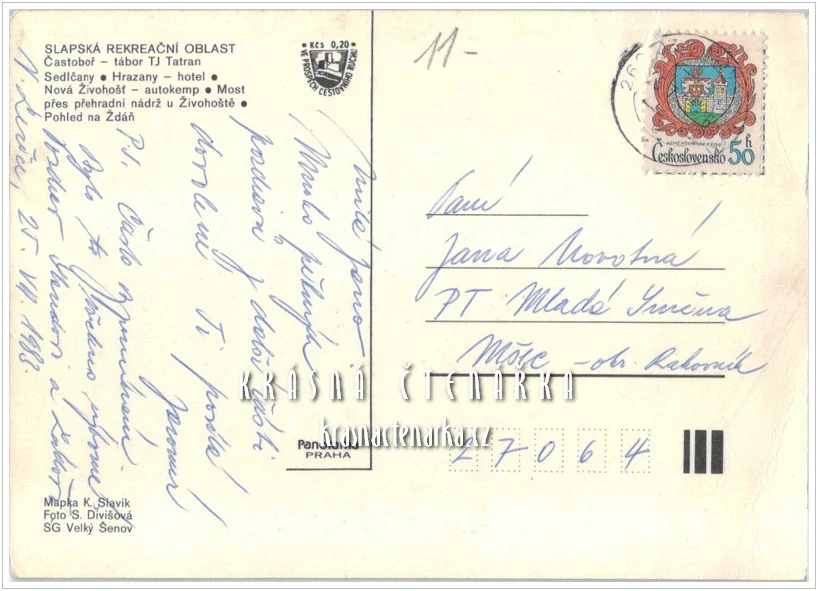 SLAPSKÁ REKREAČNÍ OBLAST
Častoboř – tábor TJ Tatran
Sedlčany ● Hrazany – hotel ●
Nová Živohošť – autokemp ● Most
přes přehradní nádrž u Živohoště ●
Pohled na Ždáň
Kčs 0,20
VE PROSPĚCH CESTOVNÍHO RUCHU
11-
Československo 50 h
Milá Jano
Mnoho pěkných
pozdravů z další části
dovolené Ti posílá
Jaromír
P.S. Často vzpomínám.
Bylo to všechno
25. VII. 1983.
Paní
Jana Novotná
PT Mladá Smečna
Mšec – okr. Rakovník
27064
KRÁSNÁ ČTENÁŘKA
krasnactenarka.cz
Panorama
PRAHA
Mapka K. Slavík
Foto S. Divišová
SG Velký Šenov